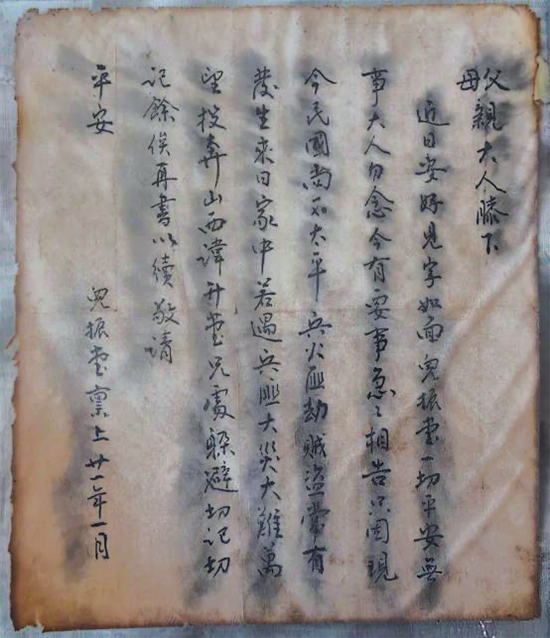 父母親大人膝下
近日安好見字如面兒振堂一切平安無
事大人勿念今有要事急急相告只因現
今民國尚不太平兵火匪劫賊盜常有
發生來日家中若遇兵匪大災大難萬
望投奔山西諱升堂兄處躲避切記切
記餘俟再書以續敬請
平安
兒振堂稟上廿一年一月